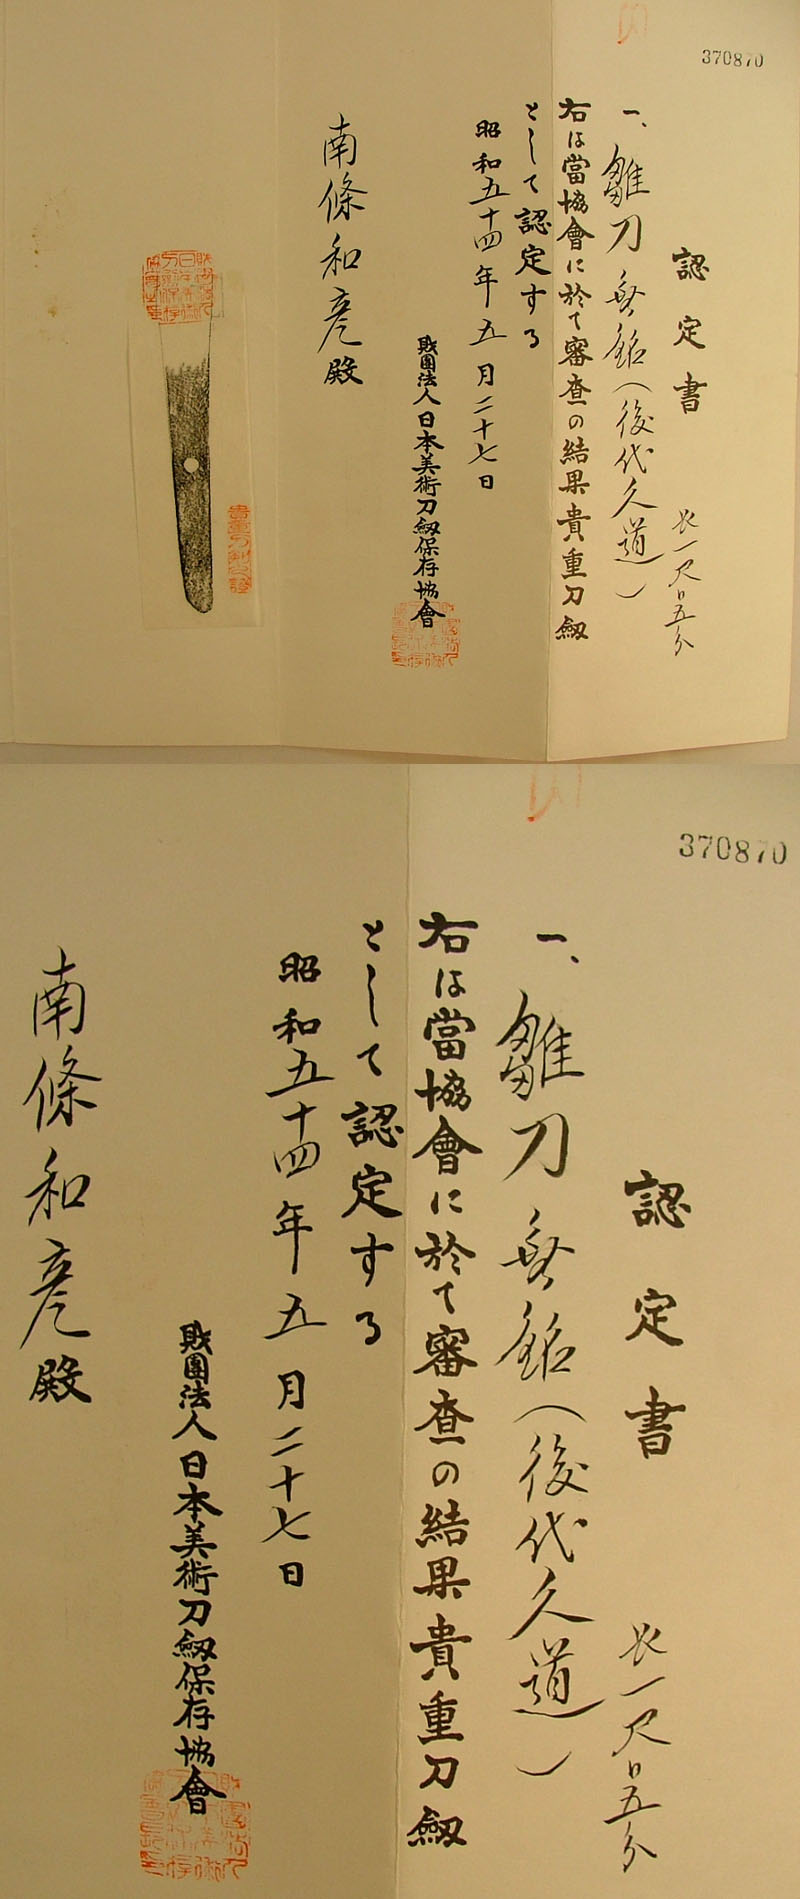 370870
認定書
一、雛刀 無銘(後代久道)
長一尺〇五分
右は當協會に於て審査の結果貴重刀劔
として認定する
昭和五十四年五月二十七日
財團法人日本美術刀劔保存協會
南條和彦殿
貴重刀剣之證
370870
認定書
一、雛刀 無銘(後代久道)
長一尺〇五分
右は當協會に於て審査の結果貴重刀劔
として認定する
昭和五十四年五月二十七日
財團法人日本美術刀劔保存協會
南條和彦殿